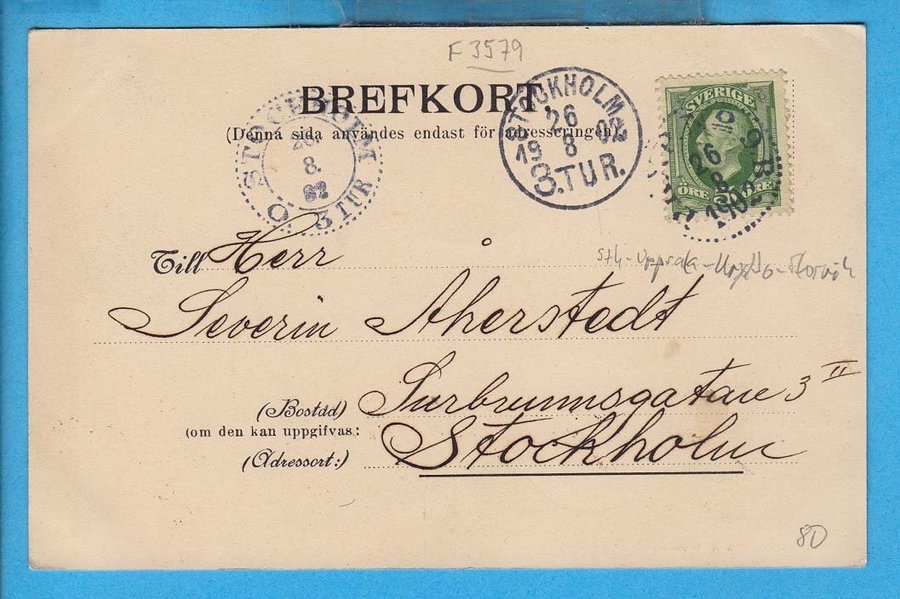 F 3579
BREFKORT.
(Denna sida användes endast för adresseringen).
STOCKHOLM
26
8
3 TUR
Ö.
STOCKHOLM
26
19 8 02
3. TUR.
SVERIGE
26
8
1902
ÖRE
Till Herr
Severin Åkerstedt
(Bostad) Surbrunnsgatan 3 II
(om den kan uppgifvas:
(Adressort:) Stockholm
80